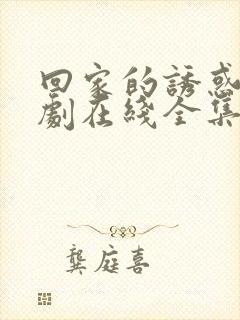 回家的誘惑
劇在綫全集
龔庭喜